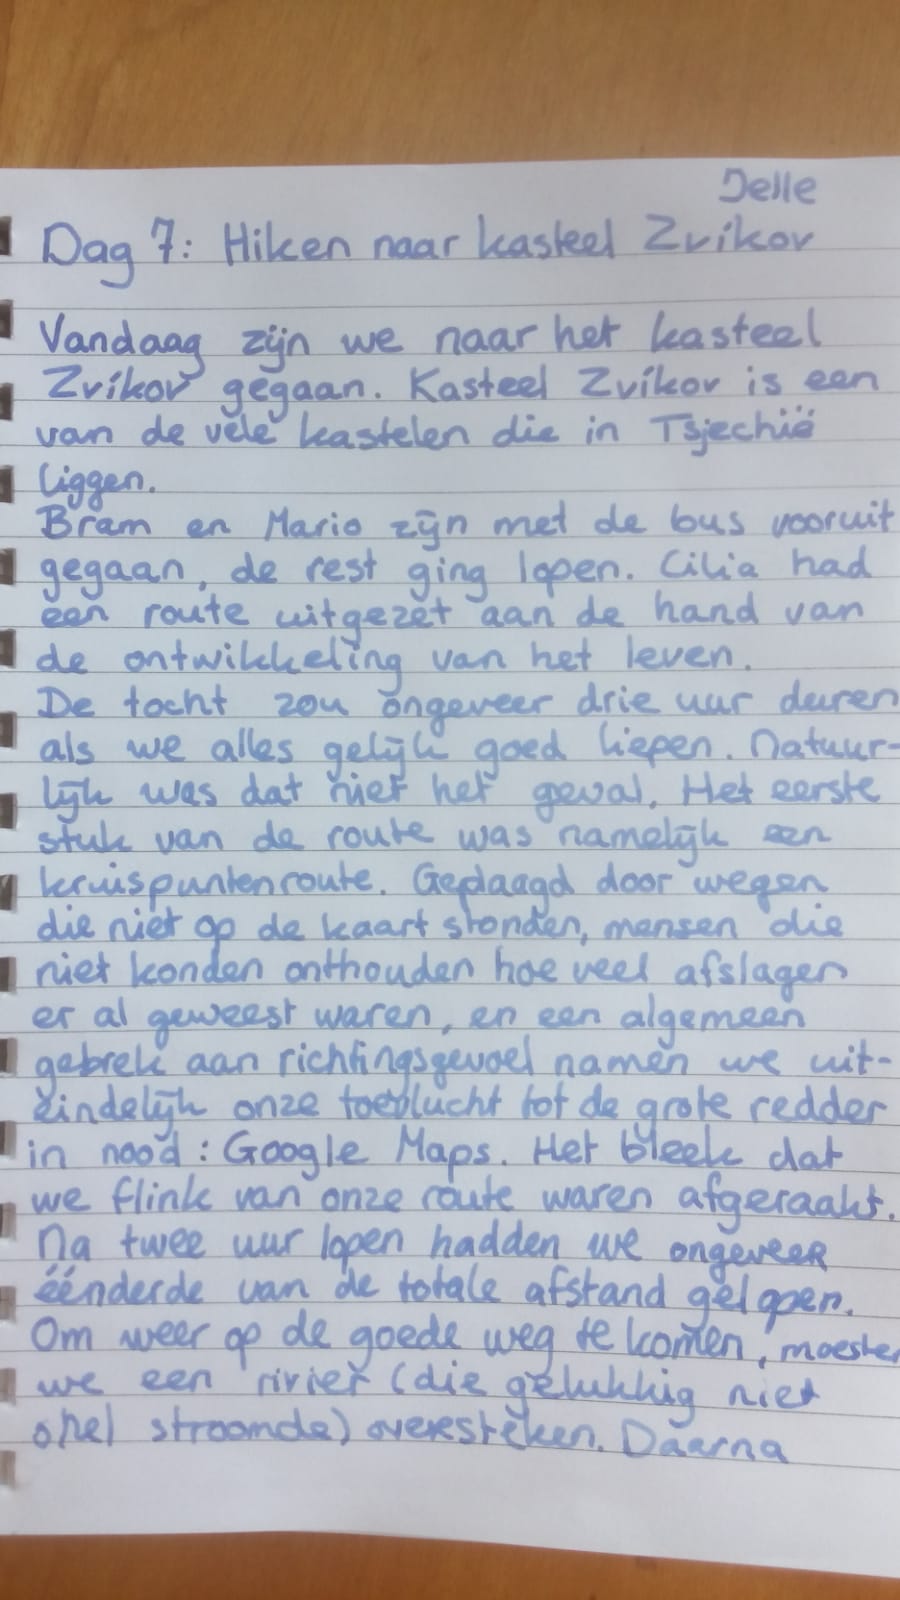 Jelle
Dag 7: Hiken naar kasteel Zvíkov
Vandaag zijn we naar het kasteel
Zvíkov gegaan. Kasteel Zvíkov is een
van de vele kastelen die in Tsjechië
liggen.
Bram en Mario zijn met de bus vooruit
gegaan, de rest ging lopen. Cilia had
een route uitgezet aan de hand van
de ontwikkeling van het leven.
De tocht zou ongeveer drie uur duren
als we alles gelijk goed liepen. Natuur-
lijk was dat niet het geval. Het eerste
stuk van de route was namelijk een
kruispuntenroute. Geplaagd door wegen
die niet op de kaart stonden, mensen die
niet konden onthouden hoe veel afslagen
er al geweest waren, en een algemeen
gebrek aan richtingsgevoel namen we uit-
eindelijk onze toevlucht tot de grote redder
in nood: Google Maps. Het bleek dat
we flink van onze route waren afgeraakt.
Na twee uur lopen hadden we ongeveer
éénderde van de totale afstand gelopen.
Om weer op de goede weg te komen, moesten
we een rivier (die gelukkig niet
snel stroomde) oversteken. Daarna